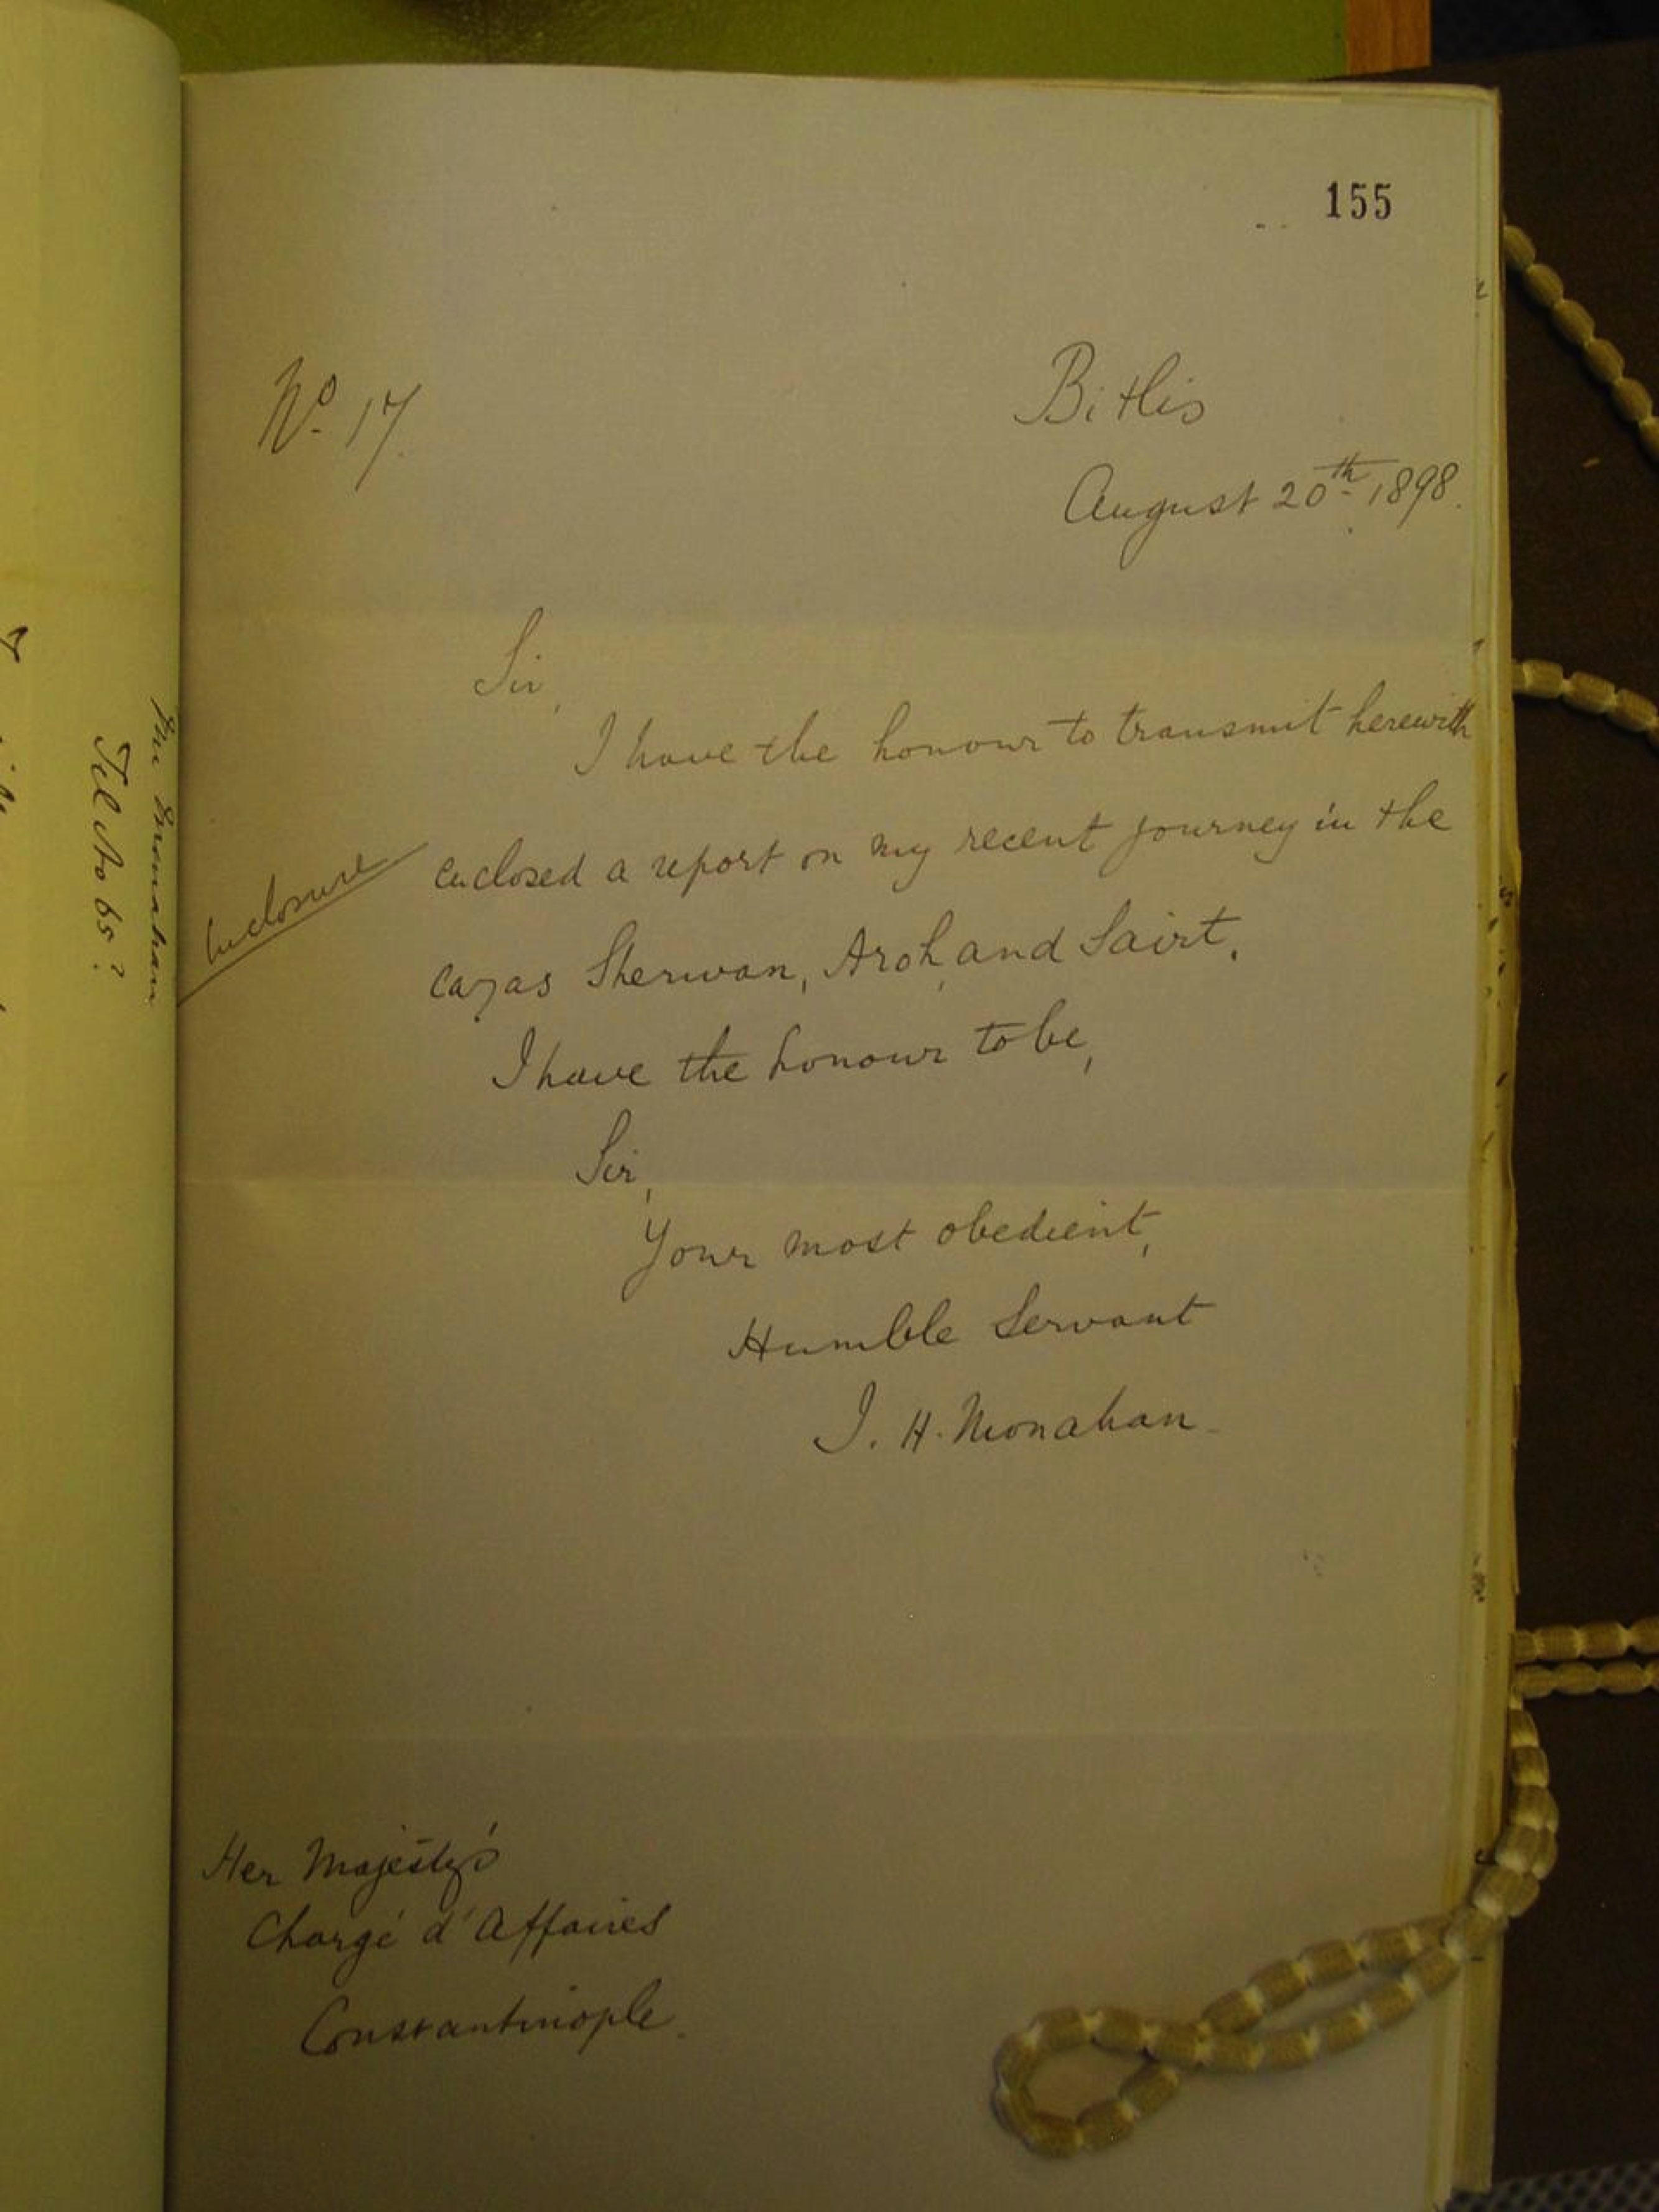 155
Nº 17.
Bitlis
August 20th 1898.
Sir,
I have the honour to transmit herewith
Enclosure
enclosed a report on my recent journey in the
cazas Sherwan, Aroh, and Sairt.
I have the honour to be,
Sir,
Your most obedient,
Humble Servant
J. H. Monahan
Her Majesty's
Chargé d'Affaires
Constantinople.
Mr Monahan
Tel No 65?